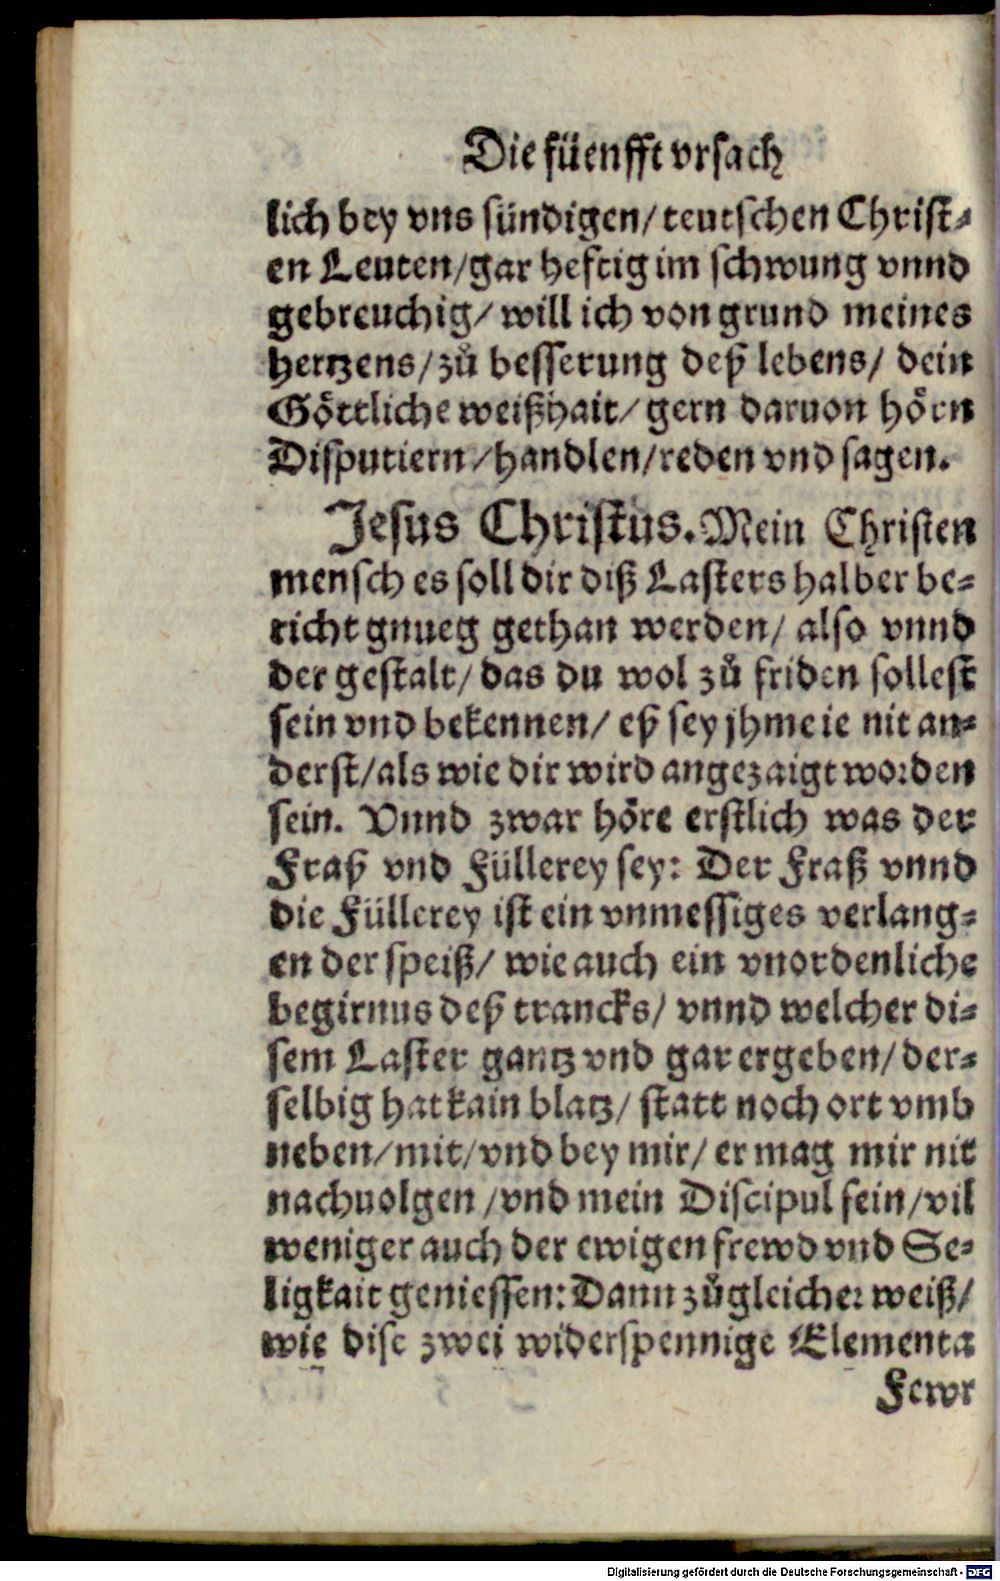 Die füenfft vrsach
lich bey vns sündigen/ teutschen Christ⸗
en Leuten/gar heftig im schwung vnnd
gebreuchig/ will ich von grund meines
hertzens/ zů besserung deß lebens/ dein
Göttliche weißhait/ gern daruon hörn
Disputiern/handlen/reden vnd sagen.
Jesus Christus. Mein Christen
mensch es soll dir diß Lasters halber be⸗
richt gnueg gethan werden/ also vnnd
der gestalt/ das du wol zů friden sollest
sein vnd bekennen/ eß sey jhme ie nit an⸗
derst/als wie dir wird angezaigt worden
sein. Vnnd zwar höre erstlich was der
Fraß vnd Füllerey sey: Der Fraß vnnd
die Füllerey ist ein vnmessiges verlang⸗
en der speiß/ wie auch ein vnordenliche
begirnus deß trancks/ vnnd welcher di⸗
sem Laster gantz vnd gar ergeben/ der⸗
selbig hat kain blatz/ statt noch ort vmb
neben/mit/vnd bey mir/ er mag mir nit
nachuolgen /vnd mein Discipul sein/vil
weniger auch der ewigen frewd vnd Se⸗
ligkait geniessen: Dann zů gleicher weiß/
wie dise zwei widerspennige Elementa
Fewr
Digitalisierung gefördert durch die Deutsche Forschungsgemeinschaft - DFG